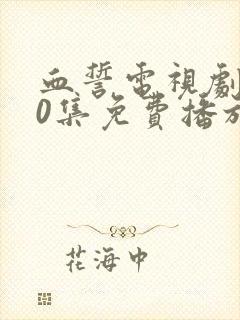 血誓電視劇
0集免費播放
花海中